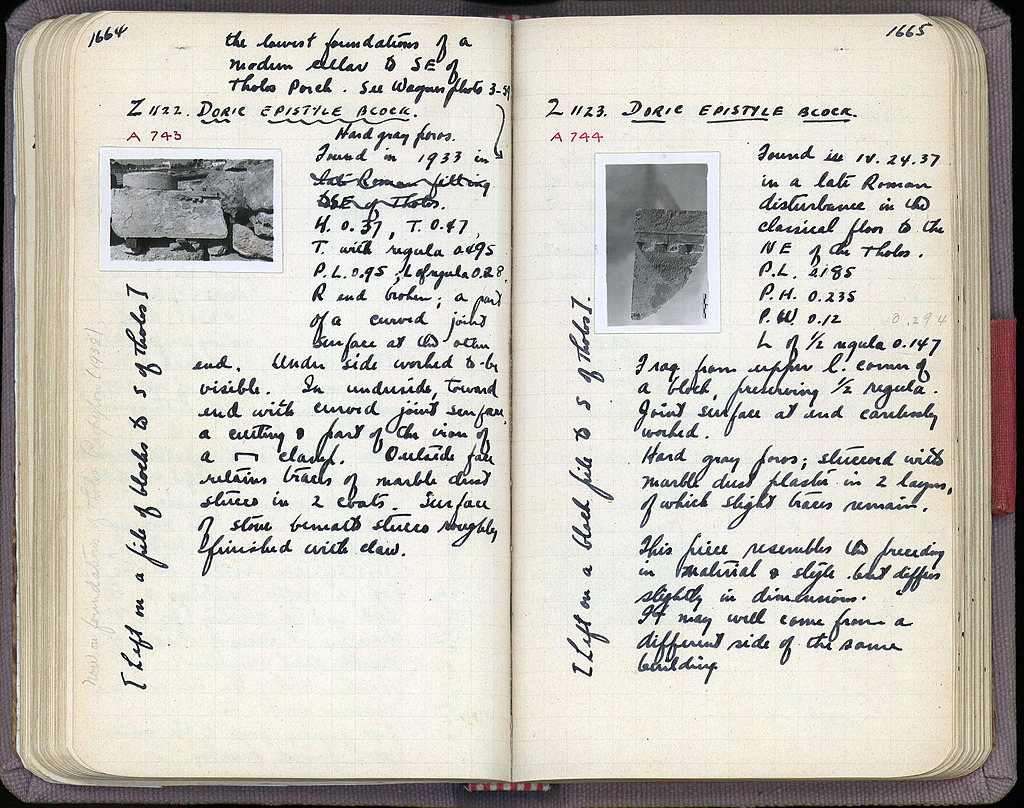 1664
the lowest foundations of a
modern cellar to SE of
Tholos Porch. See Wagner photo 3-59
Z 1122. DORIC EPISTYLE BLOCK.
A 743
Hard gray poros.
Found in 1933 in
late Roman fitting
SE of Tholos.
H. 0.37, T. 0.47,
T. with regula 0.495
P.L. 0.95, L of regula 0.28.
R end broken; a part
of a curved joint
surface at the other
end. Under side worked to be
visible. In underside, toward
end with curved joint surface,
a cutting & part of the iron of
a ⊓ clamp. Outside face
retains traces of marble dust
stucco in 2 coats. Surface
of stone beneath stucco roughly
finished with claw.
[Left on a pile of blocks to S of Tholos]
Now on foundations
1665
Z 1123. DORIC EPISTYLE BLOCK.
A 744
Found in IV.24.37
in a late Roman
disturbance in the
classical floor to the
NE of the Tholos.
P.L. 0.185
P.H. 0.235
P.W. 0.12
0.294
L of 1/2 regula 0.147
Frag from upper l. corner of
a block, preserving 1/2 regula.
Joint surface at end carelessly
worked.
Hard gray poros; stuccoed with
marble dust plaster in 2 layers,
of which slight traces remain.
This piece resembles the preceding
in material & style but differs
slightly in dimensions.
It may well come from a
different side of the same
building
[Left on a block pile to S of Tholos].